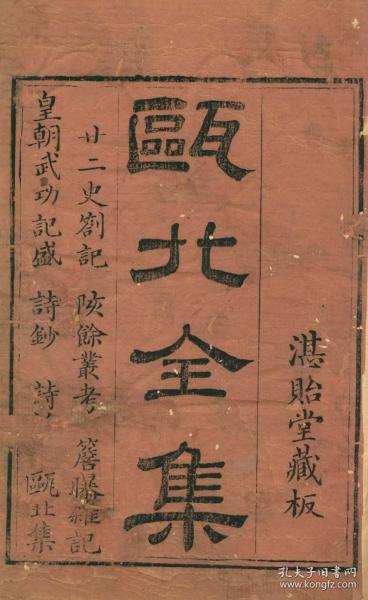 湛貽堂藏板
甌北全集
廿二史劄記 陔餘叢考 簷曝雜記
皇朝武功記盛 詩鈔 詩 甌北集
孔夫子旧书网
www.kongfz.com